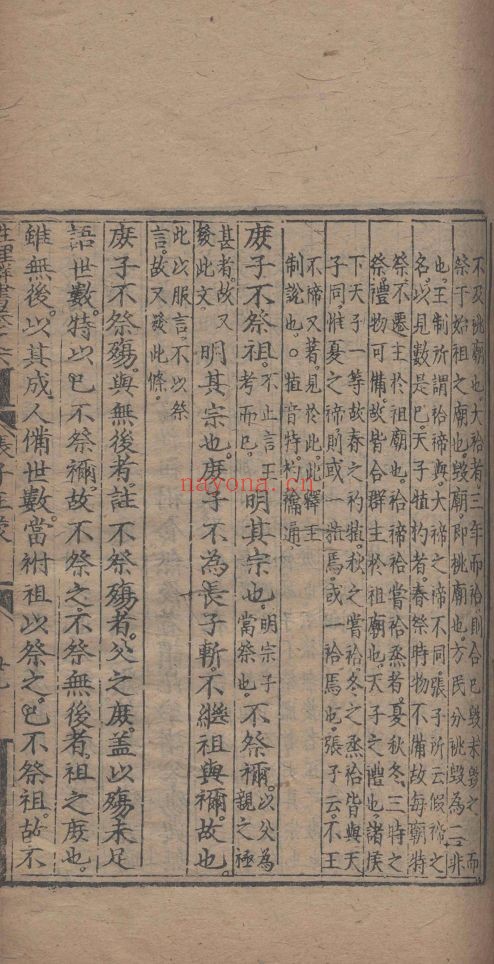 不及祧廟也大祫者三年而祫則合已毀未毀之主而
祭于始祖之廟也毀廟即祧廟也方氏分祧毀為二非
也王制所謂祫禘與大禘之禘不同張子所云假禘之
名以見數是巳天子犆礿者春祭時物不備故每廟特
祭不遷主於祖廟也祫禘祫嘗祫烝者夏秋冬三時之
祭禮物可備故皆合群主於祖廟也天子之禮也諸侯
下天子一等故春之礿犆秋之嘗祫冬之烝祫皆與天
子同惟夏之禘則或一犆焉或一祫焉也張子云不王
不禘又著見於此此釋王
制說也○犆音特礿禴通
庶子不祭祖不止言王考而巳明其宗也明宗子當祭也不祭禰以父為親之極
甚者故又發此文明其宗也庶子不為長子斬不繼祖與禰故也
此以服言不以祭言故又發此條
庶子不祭殤與無後者註不祭殤者父之庶蓋以殤未足
語世數特以巳不祭禰故不祭之不祭無後者祖之庶也
雖無後以其成人備世數當祔祖以祭之巳不祭祖故不
張子正蒙
nayona.cn